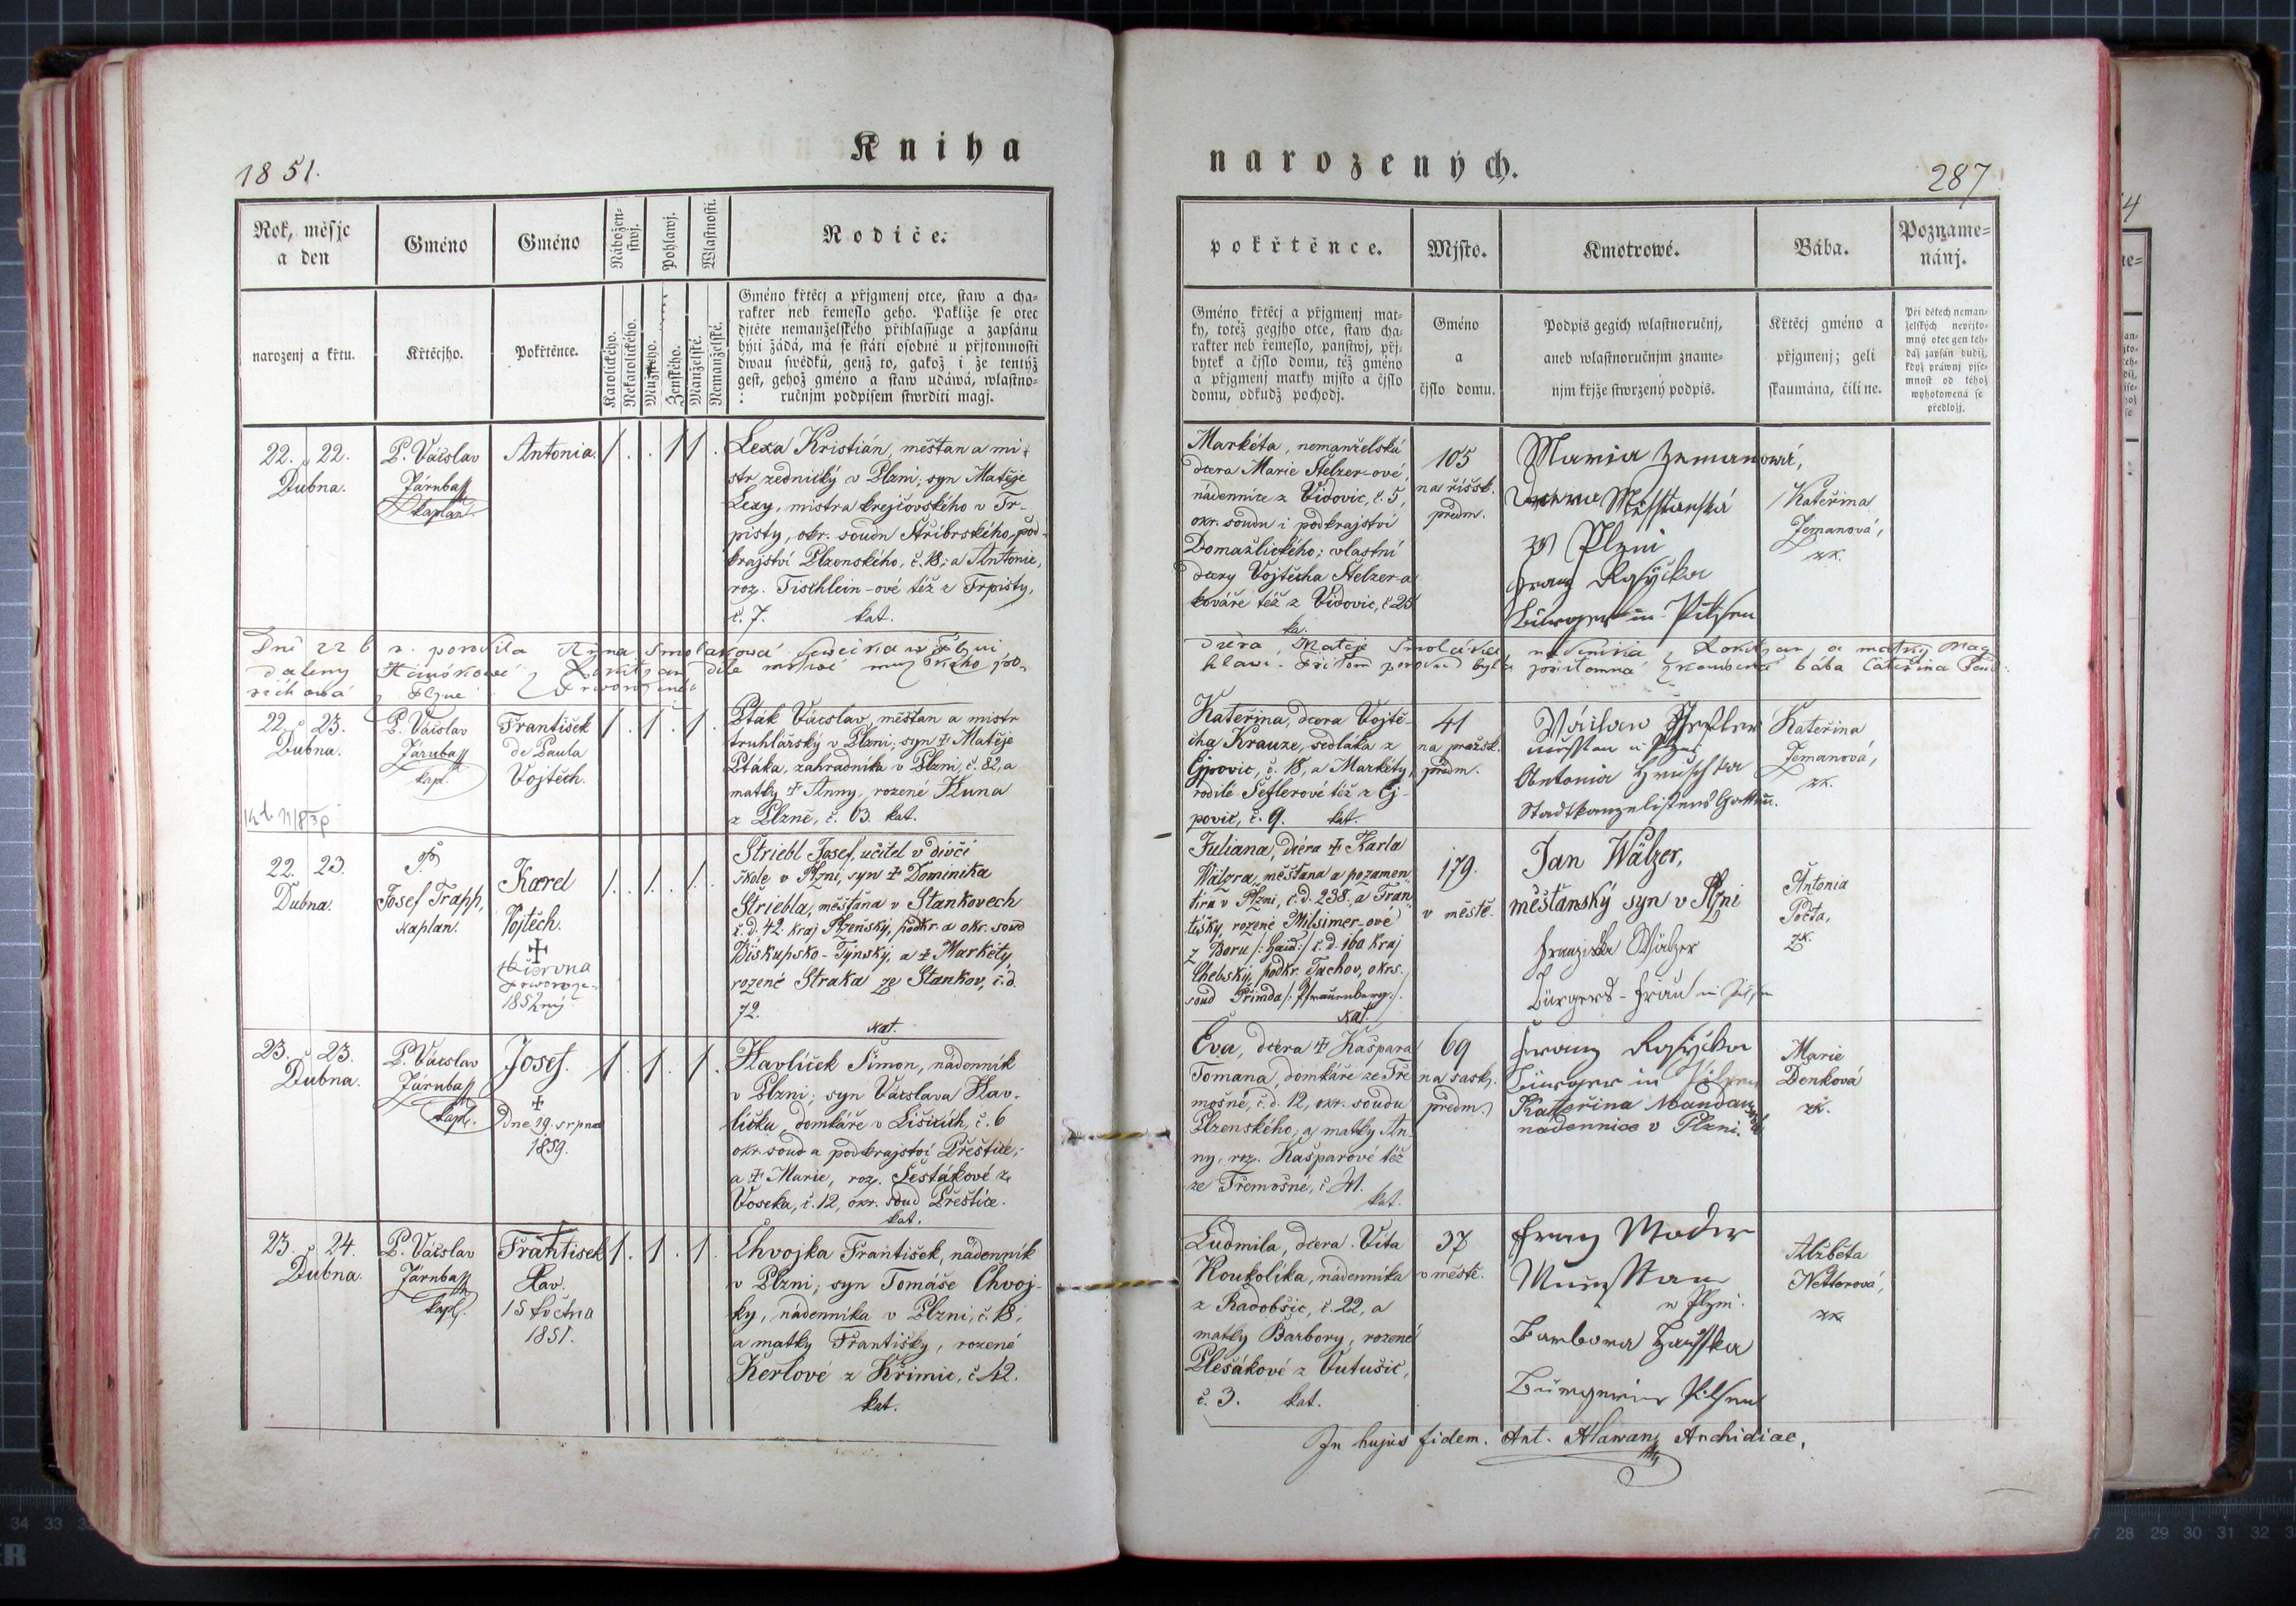 1851.
Kniha
Rok, měsjc
a den
narozenj a křtu.
Gméno
Křtěcjho.
Gméno
Pokřtěnce.
Nábožen-
stwj.
Katolického.
Nekatolického.
Pohlawj.
Mužského.
Ženského.
Wlastnosti.
Manželské.
Nemanželské.
Rodiče:
Gméno křtěcj a přjgmenj otce, staw a cha-
rakter neb řemeslo geho. Pakliže se otec
djtěte nemanželského přihlassuge a zapsánu
býti žádá, má se státi osobně u přjtomnosti
dwau swědků, genž to, gakož i že tentýž
gest, gehož gméno a staw udáwá, wlastno-
ručnjm podpisem stwrditi magj.
22. 22.
Dubna.
P. Václav
Járuba
kaplan
Antonia.
1 . . 1 1 .
Lexa Kristián, měšťan a mi-
str zednický v Plzni; syn Matěje
Lexy, mistra krejčovského v Tr-
pisty, okr. soudu Stříbrského, pod-
krajství Plzenského, č. 18; a Antonie,
roz. Tischlein-ové též z Trpisty,
č. 7. kat.
Dne 22 b r. porodila Anna Smolakowá w Plzni
daleny z Rokitzan dite mrtwé
z Plzne
22. 23.
Dubna.
P. Václav
Járuba
kapl.
František
de Paula
Vojtěch.
1 . 1 . 1 .
Pták Václav, měšťan a mistr
truhlářský v Plzni; syn ☩ Matěje
Ptáka, zahradníka v Plzni, č. 82, a
matky ☩ Anny, rozené Kuna
z Plzně, č. 63. kat.
22. 23.
Dubna.
P.
Josef Trapp,
kaplan.
Karel
Vojtěch.
☩
června
1852
1 . 1 . 1 .
Striebl Josef, učitel v dívčí
škole v Plzni, syn ☩ Dominika
Striebla, měšťana v Stankovech
č. d. 42. kraj Plzeňský, podkr. a okr. soud
Biskupsko-Týnský, a ☩ Markéty,
rozené Straka ze Stankov, č. d.
72.
kat.
23. 23.
Dubna.
P. Václav
Járuba
kapl.
Josef.
☩
Dne 19. srpna
1859.
1 . 1 . 1 .
Havlíček Šimon, nádenník
v Plzni; syn Václava Hav-
líčka, domkáře v Lišicích, č. 6
okr. soud a podkrajství Přeštice,
a ☩ Marie, roz. Šestákové z
Voseka, č. 12, okr. soud Přeštice.
kat.
23. 24.
Dubna.
P. Václav
Járuba
kapl.
František
Slav.
15 května
1851.
1 . 1 . 1 .
Chvojka František, nádenník
v Plzni; syn Tomáše Chvoj-
ky, nádenníka v Plzni, č. 18;
a matky Františky, rozené
Kerlové z Křimic, č. 42.
kat.
narozených.
287
pokřtěnce.
Gméno křtěcj a přjgmenj mat-
ky, totéž gegjho otce, staw cha-
rakter neb řemeslo, panstwj, přj-
bytek a čjslo domu, též gméno
a přjgmenj matky mjsto a čjslo
domu, odkudž pochodj.
Mjsto.
Gméno
a
čjslo domu.
Kmotrowé.
Podpis gegich wlastnoručnj,
aneb wlastnoručnjm zname-
njm křjže stwrzený podpis.
Bába.
Křtěcj gméno a
přjgmenj; geli
skaumána, čili ne.
Pozname-
nánj.
Při dětech neman-
želských nepřjto-
mný otec gen teh-
daž zapsán budiž,
když práwnj pjse-
mnost od téhož
wyhotowená se
předložj.
Markéta, nemanželská
dcera Marie Štelzer-ové,
nádennice z Vidovic, č. 5,
okr. soudu i podkrajství
Domažlického; vlastní
dcery Vojtěcha Štelzer-a
kováře též z Vidovic, č 25
ka.
105
na říšsk.
předm.
Maria Zemanowá,
Měsstanská
w Plzni
Franz Rasyčka
Bürger in Pilsen
Kateřina
Zemanová,
zk.
dcera Mateje Smoláka z Rokitzan, a matky Mag
bába
Kateřina, dcera Vojtě-
cha Krauze, sedláka z
Ejpovic, č. 18, a Markéty,
rodilé Šeflerové též z Ej-
povic, č. 9. kat.
41
na pražsk.
předm.
Václaw Scheffler
měsstan w Plzni
Antonia Hruschka
Stadtkanzelistens Gattin.
Kateřina
Zemanová,
zk.
Juliana, dcera ☩ Karla
Wälzra, měšťana a pozamen-
tira v Plzni, č. d. 238, a Fran-
tišky, rozené Milsimer-ové
z Boru /: Haid:/ č. d. 160 kraj
Chebský, podkr. Tachov, okrs.
soud Přimda /: Pfraumberg:/.
kat.
179.
v městě.
Jan Wälzer,
měšťanský syn v Plzni
Franziska Wälzer
Bürgers-Frau in Pilsen
Antonia
Pocta,
zk.
Eva, dcera ☩ Kašpara
Tomana, domkáře ze Tře-
mošné, č. d. 12, okr. soudu
Plzenského; a matky An-
ny, roz. Kašparové též
ze Třemošné, č 41.
kat.
69
na sask.
předm.
Franz Rasyčka
Bürger in Pilsen
Kateřina Mandausová
nádennice v Plzni.
Marie
Denková
zk.
Ludmila, dcera Víta
Koukolíka, nádenníka
z Radobšic, č. 22, a
matky Barbory, rozené
Plešákové z Vutušic,
č. 3. kat.
37
v městě.
Franz Mader
w Plzni.
Barbora
Bürgerin Pilsen
Alžběta
Netterová,
zk.
In hujus fidem. Ant. Hlawan Archidiac.